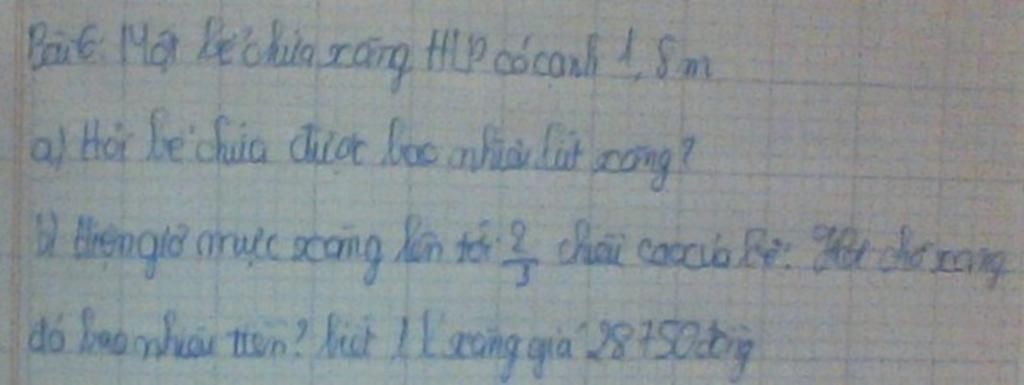 Bài 6: Một bể chứa xăng HLP có cạnh 1,5 m
a) Hỏi bể chứa được bao nhiêu lít xăng?
b) Hiện giờ mực xăng lên tới 2/3 chiều cao của bể. Hỏi chỗ xăng
đó bao nhiêu tiền? biết 1 l xăng giá 28750 đồng